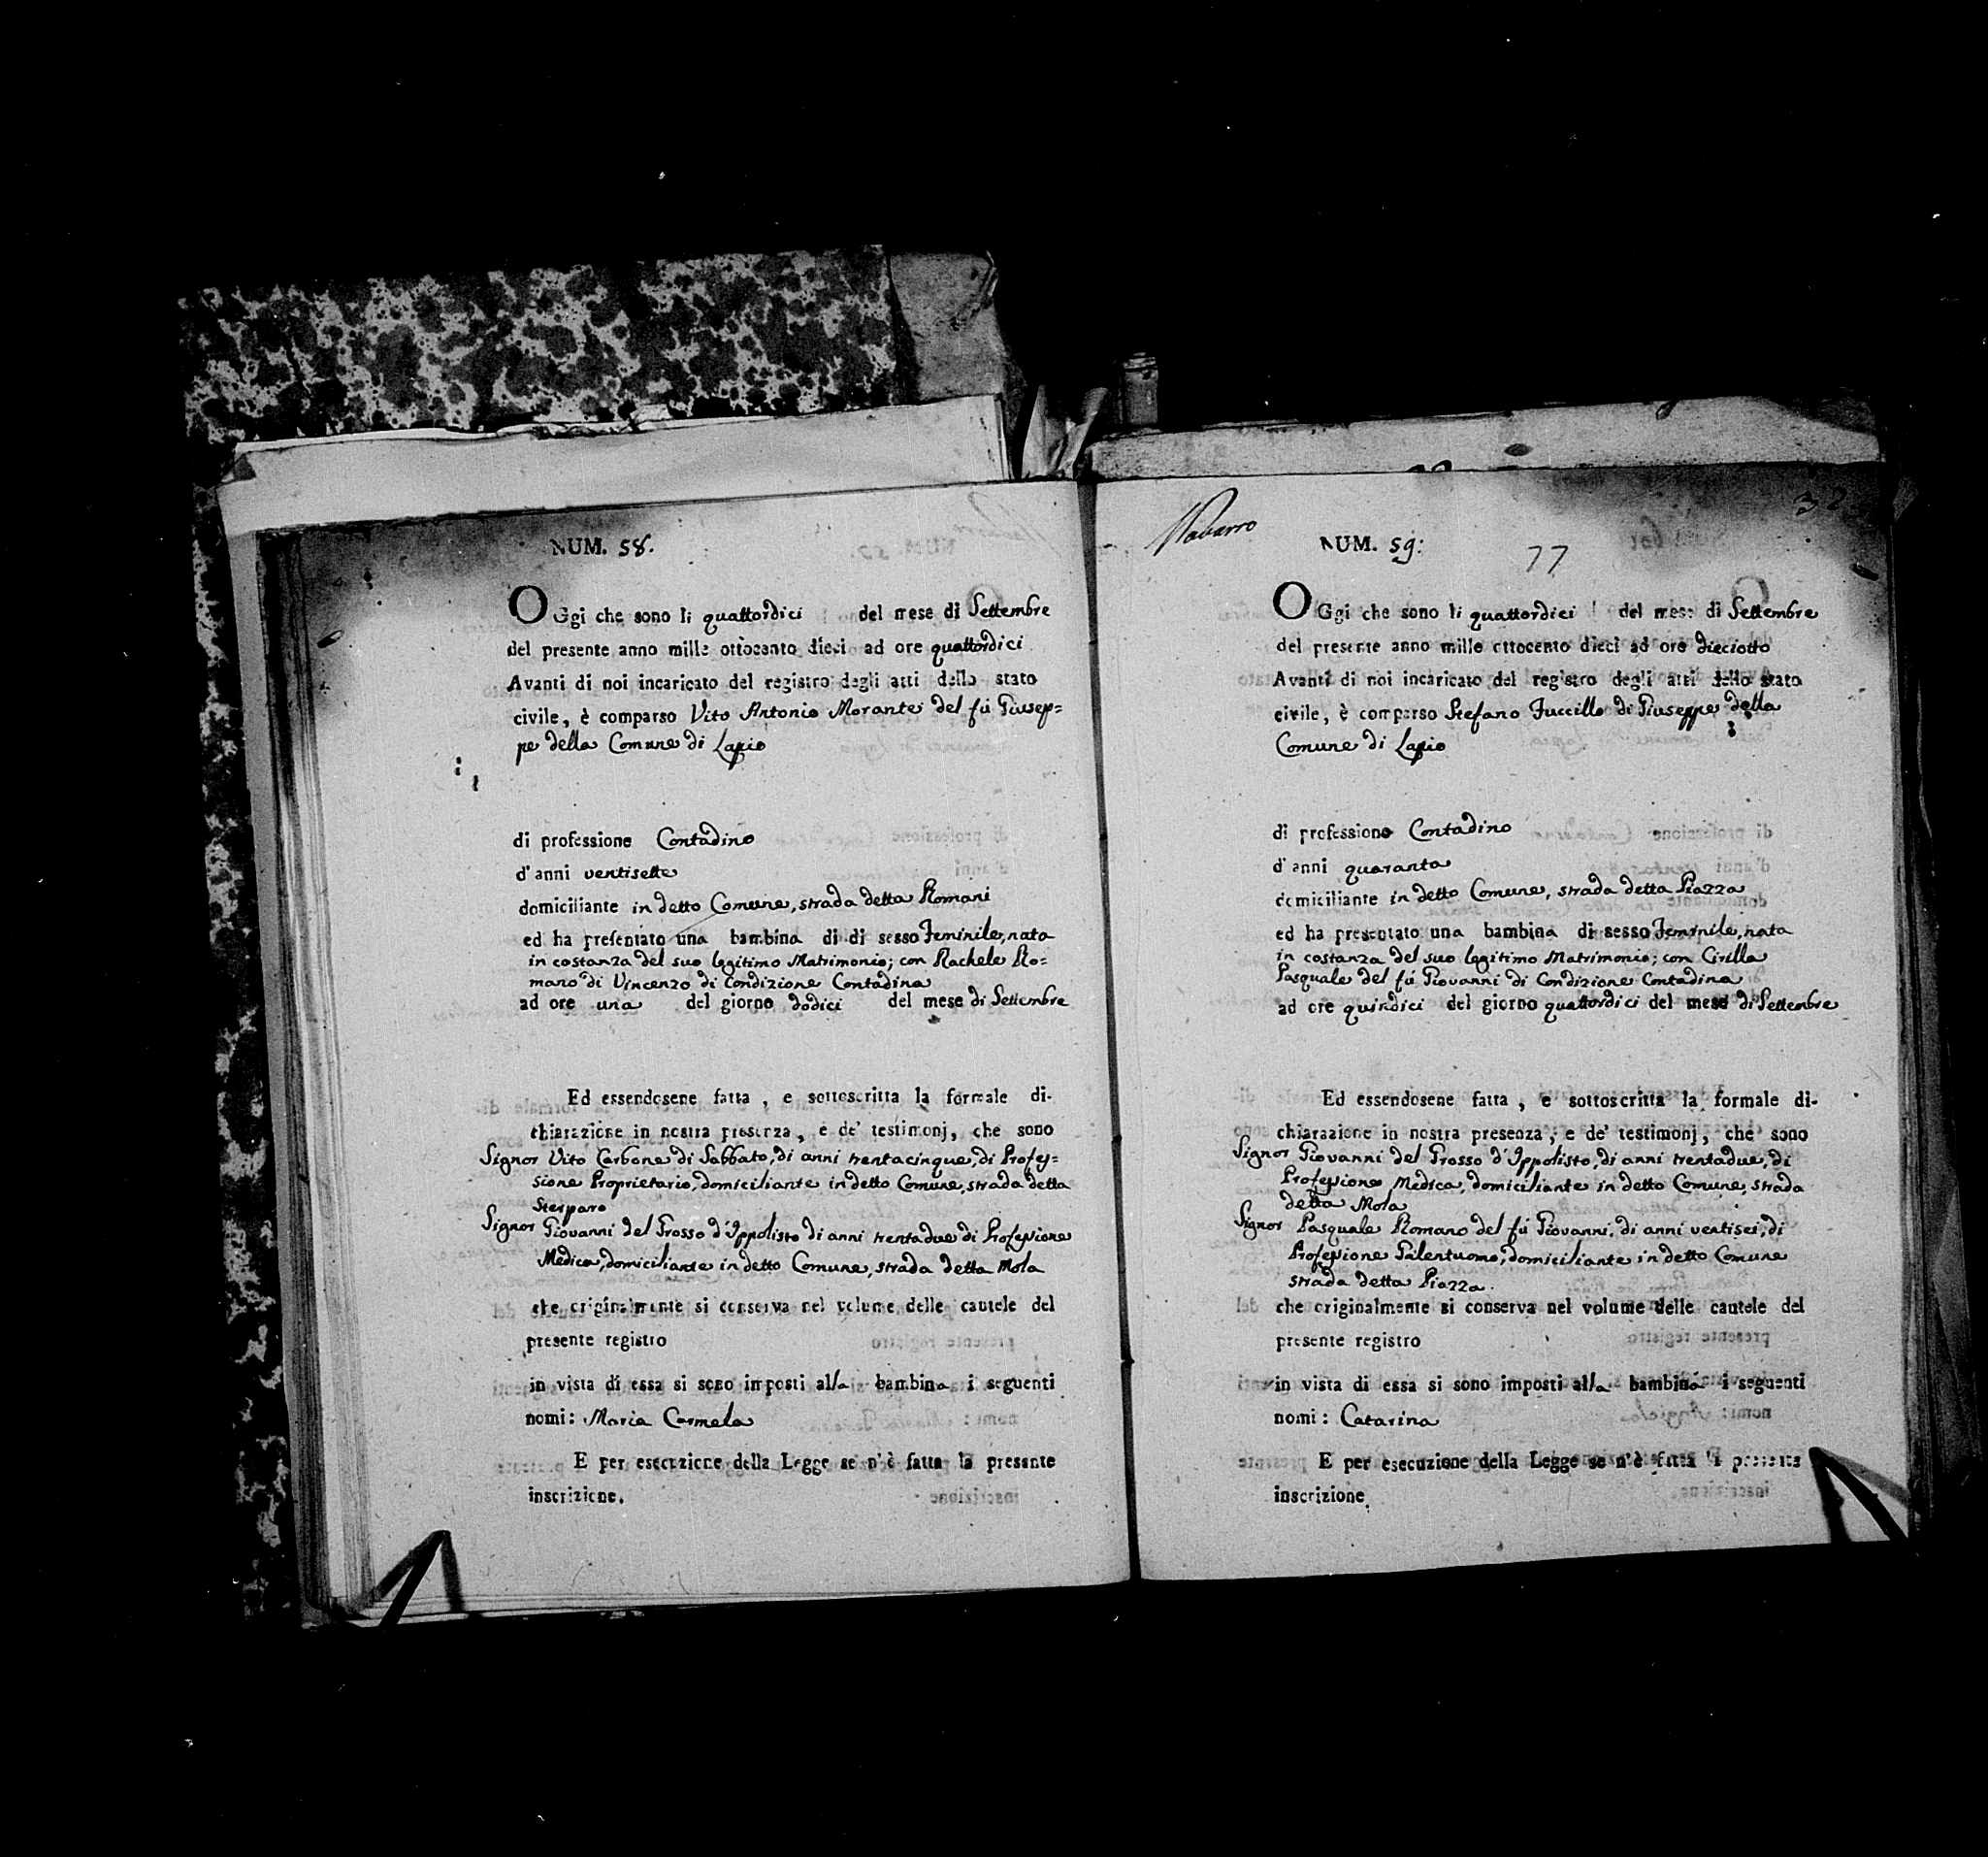 NUM. 58.
OGgi che sono li quattordici del mese di Settembre
del presente anno mille ottocento dieci ad ore quattordici
Avanti di noi incaricato del registro degli atti dello stato
civile, è comparso Vito Antonio Morante del fú Giusep=
pe della Comune di Lapio
di professione Contadino
d'anni ventisette
domiciliante in detto Comune, strada detta Romani
ed ha presentato una bambina di di sesso Feminile, nata
in costanza del suo legitimo Matrimonio; con Rachele Ro=
mano di Vincenzo di Condizione Contadina
ad ore una del giorno dodici del mese di Settembre
Ed essendosene fatta, e sottoscritta la formale di-
chiarazione in nostra presenza, e de' testimonj, che sono
Signor Vito Carbone di Sabbato, di anni trentacinque, di Profes=
sione Proprietario, domiciliante in detto Comune, strada detta
Sterparo
Signor Giovanni del Grosso d'Ippolisto di anni trentadue di Professione
Medica, domiciliante in detto Comune, strada detta Mola
che originalmente si conserva nel volume delle cautele del
presente registro
in vista di essa si sono imposti alla bambina i seguenti
nomi: Maria Carmela
E per esecuzione della Legge se n'è fatta la presente
inscrizione.
Navarro
NUM. 59:
77
32
OGgi che sono li quattordici del mese di Settembre
del presente anno mille ottocento dieci ad ore dieciotto
Avanti di noi incaricato del registro degli atti dello stato
civile, è comparso Stefano Fuccillo di Giuseppe della
Comune di Lapio
di professione Contadino
d'anni quaranta
domiciliante in detto Comune, strada detta Piazza
ed ha presentato una bambina di sesso Feminile, nata
in costanza del suo legitimo Matrimonio; con Cirilla
Pasquale del fú Giovanni di Condizione Contadina
ad ore quindici del giorno quattordici del mese di Settembre
Ed essendosene fatta, e sottoscritta la formale di-
chiarazione in nostra presenza, e de' testimonj, che sono
Signor Giovanni del Grosso d'Ippolisto, di anni trentadue, di
Professione Medica, domiciliante in detto Comune, strada
detta Mola
Signor Pasquale Romano del fú Giovanni, di anni ventisei, di
Professione Galentuomo, domiciliante in detto Comune
strada detta Piazza.
che originalmente si conserva nel volume delle cautele del
presente registro
in vista di essa si sono imposti alla bambina i seguenti
nomi: Catarina
E per esecuzione della Legge se n'è fatta la presente
inscrizione